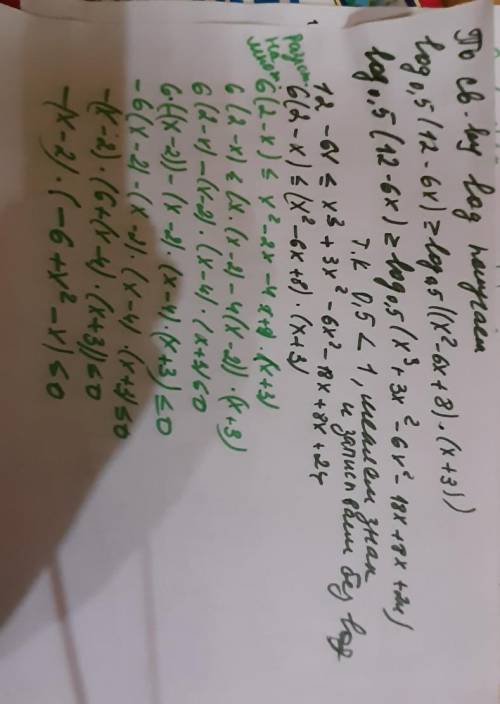 По св-ву log получаем
log0,5(12-6x) ≥ log0,5((x²-6x+8)·(x+3))
log0,5(12-6x) ≥ log0,5(x³+3x²-6x²-18x+8x+24)
т.к 0,5<1, меняем знак
и записываем без log
12-6x ≤ x³+3x²-6x²-18x+8x+24
6(2-x) ≤ (x²-6x+8)·(x+3)
на множ 6(2-x) ≤ x²-2x-4x+8 (x+3)
6(2-x) ≤ (x·(x-2)-4(x-2))·(x+3)
6(2-x)-(x-2)·(x-4)·(x+3)≤0
6·(-(x-2))-(x-2)·(x-4)·(x+3)≤0
-6(x-2)-(x-2)·(x-4)·(x+3)≤0
-(x-2)·(6+(x-4)·(x+3))≤0
-(x-2)·(-6+x²-x)≤0